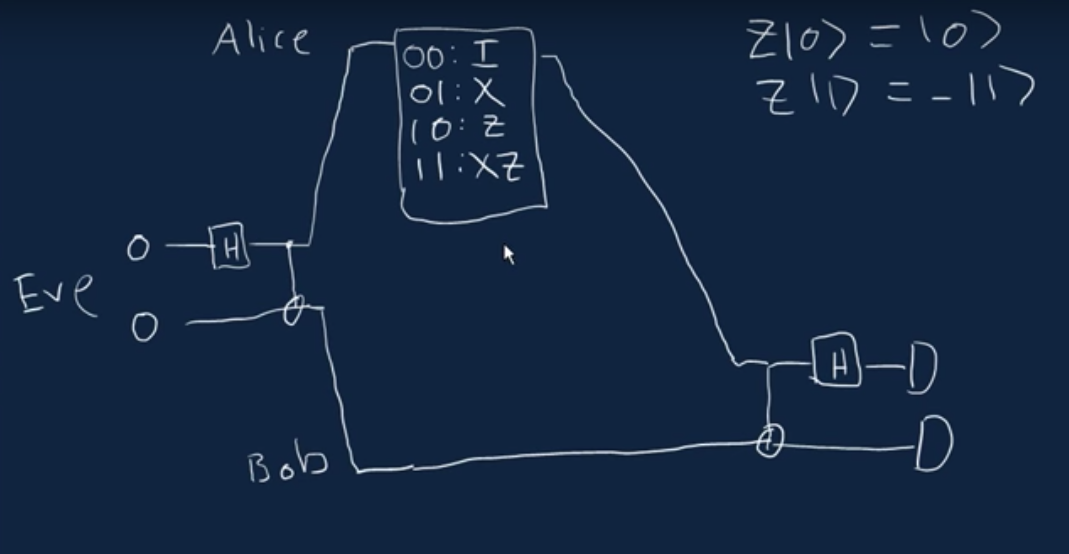 Alice
00: I
01: X
10: Z
11: XZ
Z|0⟩ = |0⟩
Z|1⟩ = -|1⟩
Eve
0
H
0
Bob
H
D
D